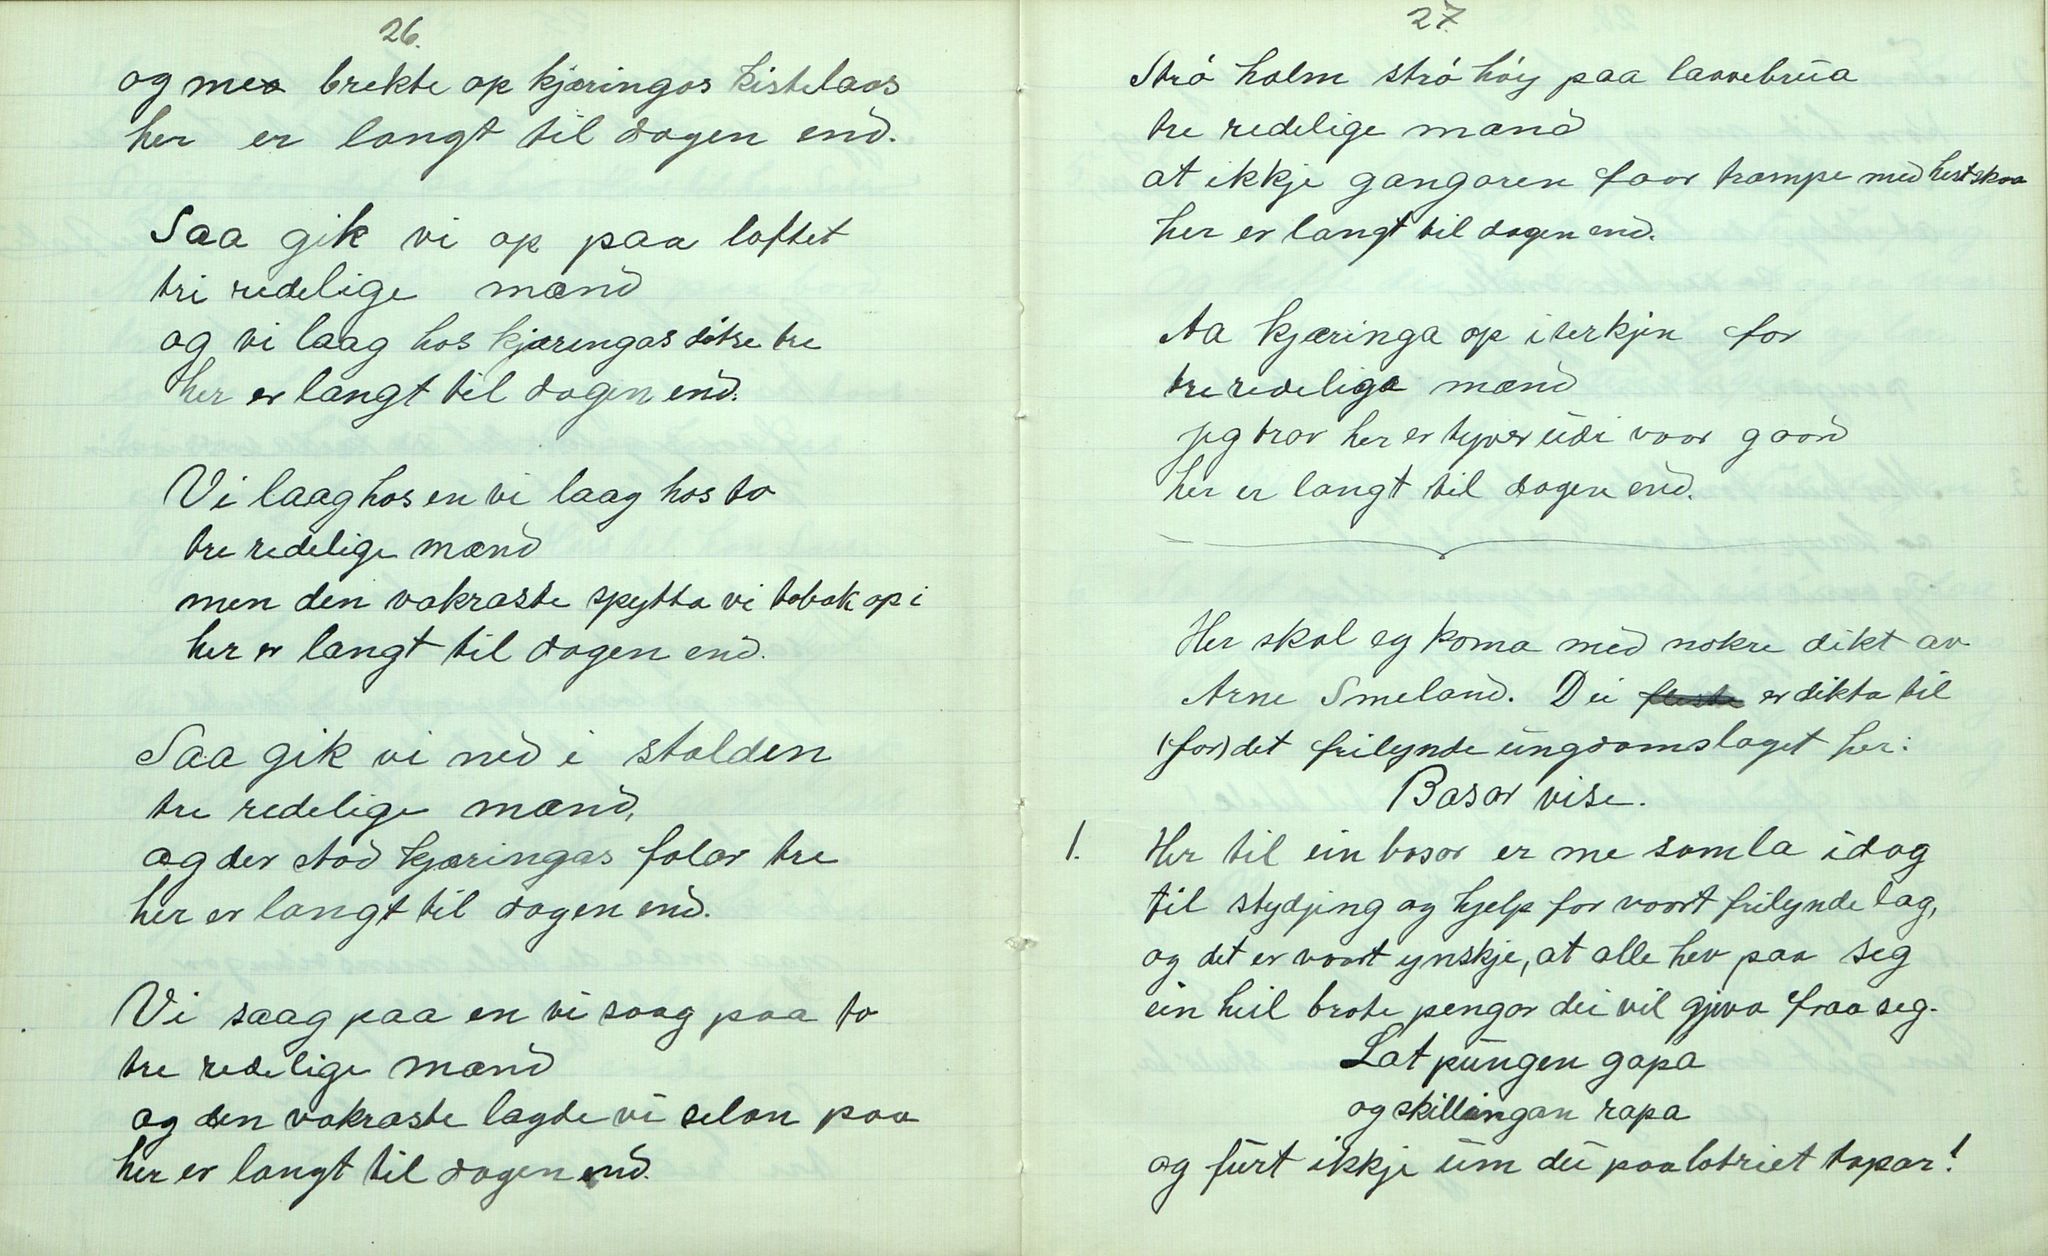 26.
og me brekte op kjæringas kistelaas
her er langt til dagen end.
Saa gik vi op paa loftet
tri redelige mænd
og vi laag hos kjæringas døtre tre
her er langt til dagen end.
Vi laag hos en vi laag hos to
tre redelige mænd
men den vakraste spytta vi tobak op i
her er langt til dagen end.
Saa gik vi ned i stalden
tre redelige mænd,
og der stod kjæringas falar tre
her er langt til dagen end.
Vi saag paa en vi saag paa to
tre redelige mænd
og den vakraste lagde vi selan paa
her er langt til dagen end.
27.
Strö halm strö höy paa laavebrua
tre redelige mænd
at ikkje gangaren faar trampe med hestskoa
her er langt til dagen end.
Aa kjæringa op i serkjen for
tre redelige mænd
jeg trar her er tyver udi vaar gaard
her er langt til dagen end.
Her skal eg koma med nokre dikt av
Arne Smeland. Dei fleste er dikta til
(for) det frilynde ungdomslaget her:
Basar vise.
1. Her til ein basar er me samla idag
til stydjing og hjelp for vaart frilynde lag,
og det er vaart ynskje, at alle hev paa seg
ein heil brote pengar dei vil gjeva fraa seg.
Lat pungen gapa
og skillingan rapa
og furt ikkje um du paa lotriet tapar!